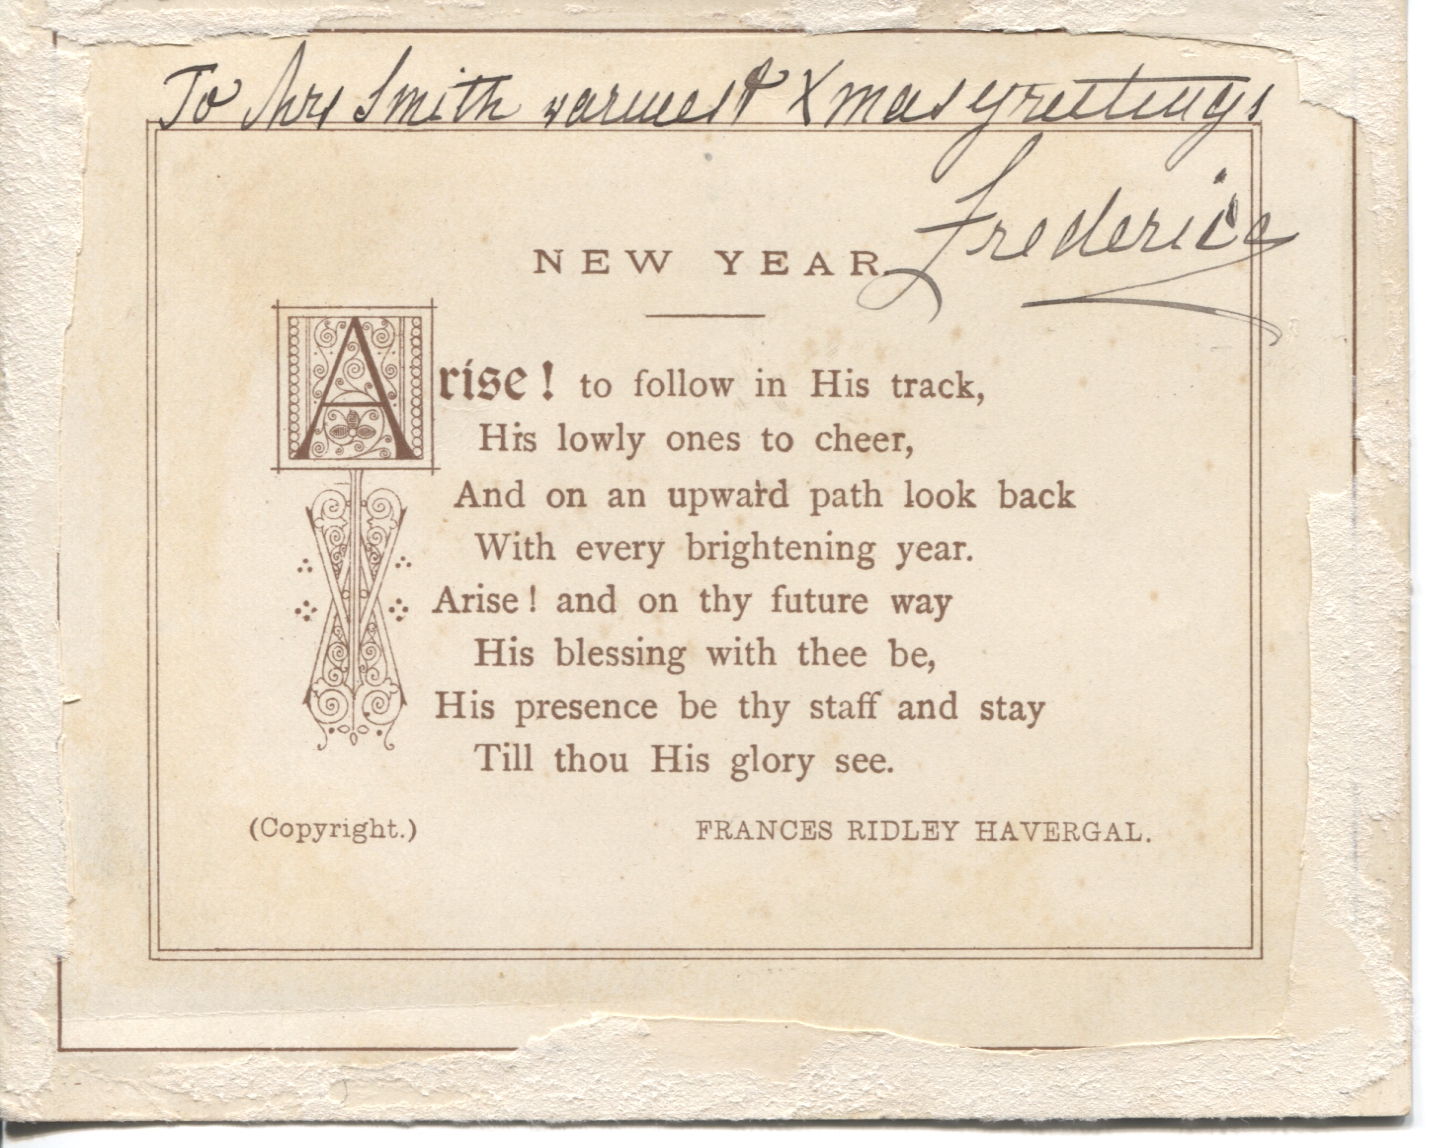 To Mrs Smith warmest Xmas greetings
Frederica
NEW YEAR.
Arise! to follow in His track,
His lowly ones to cheer,
And on an upward path look back
With every brightening year.
Arise! and on thy future way
His blessing with thee be,
His presence be thy staff and stay
Till thou His glory see.
(Copyright.) FRANCES RIDLEY HAVERGAL.